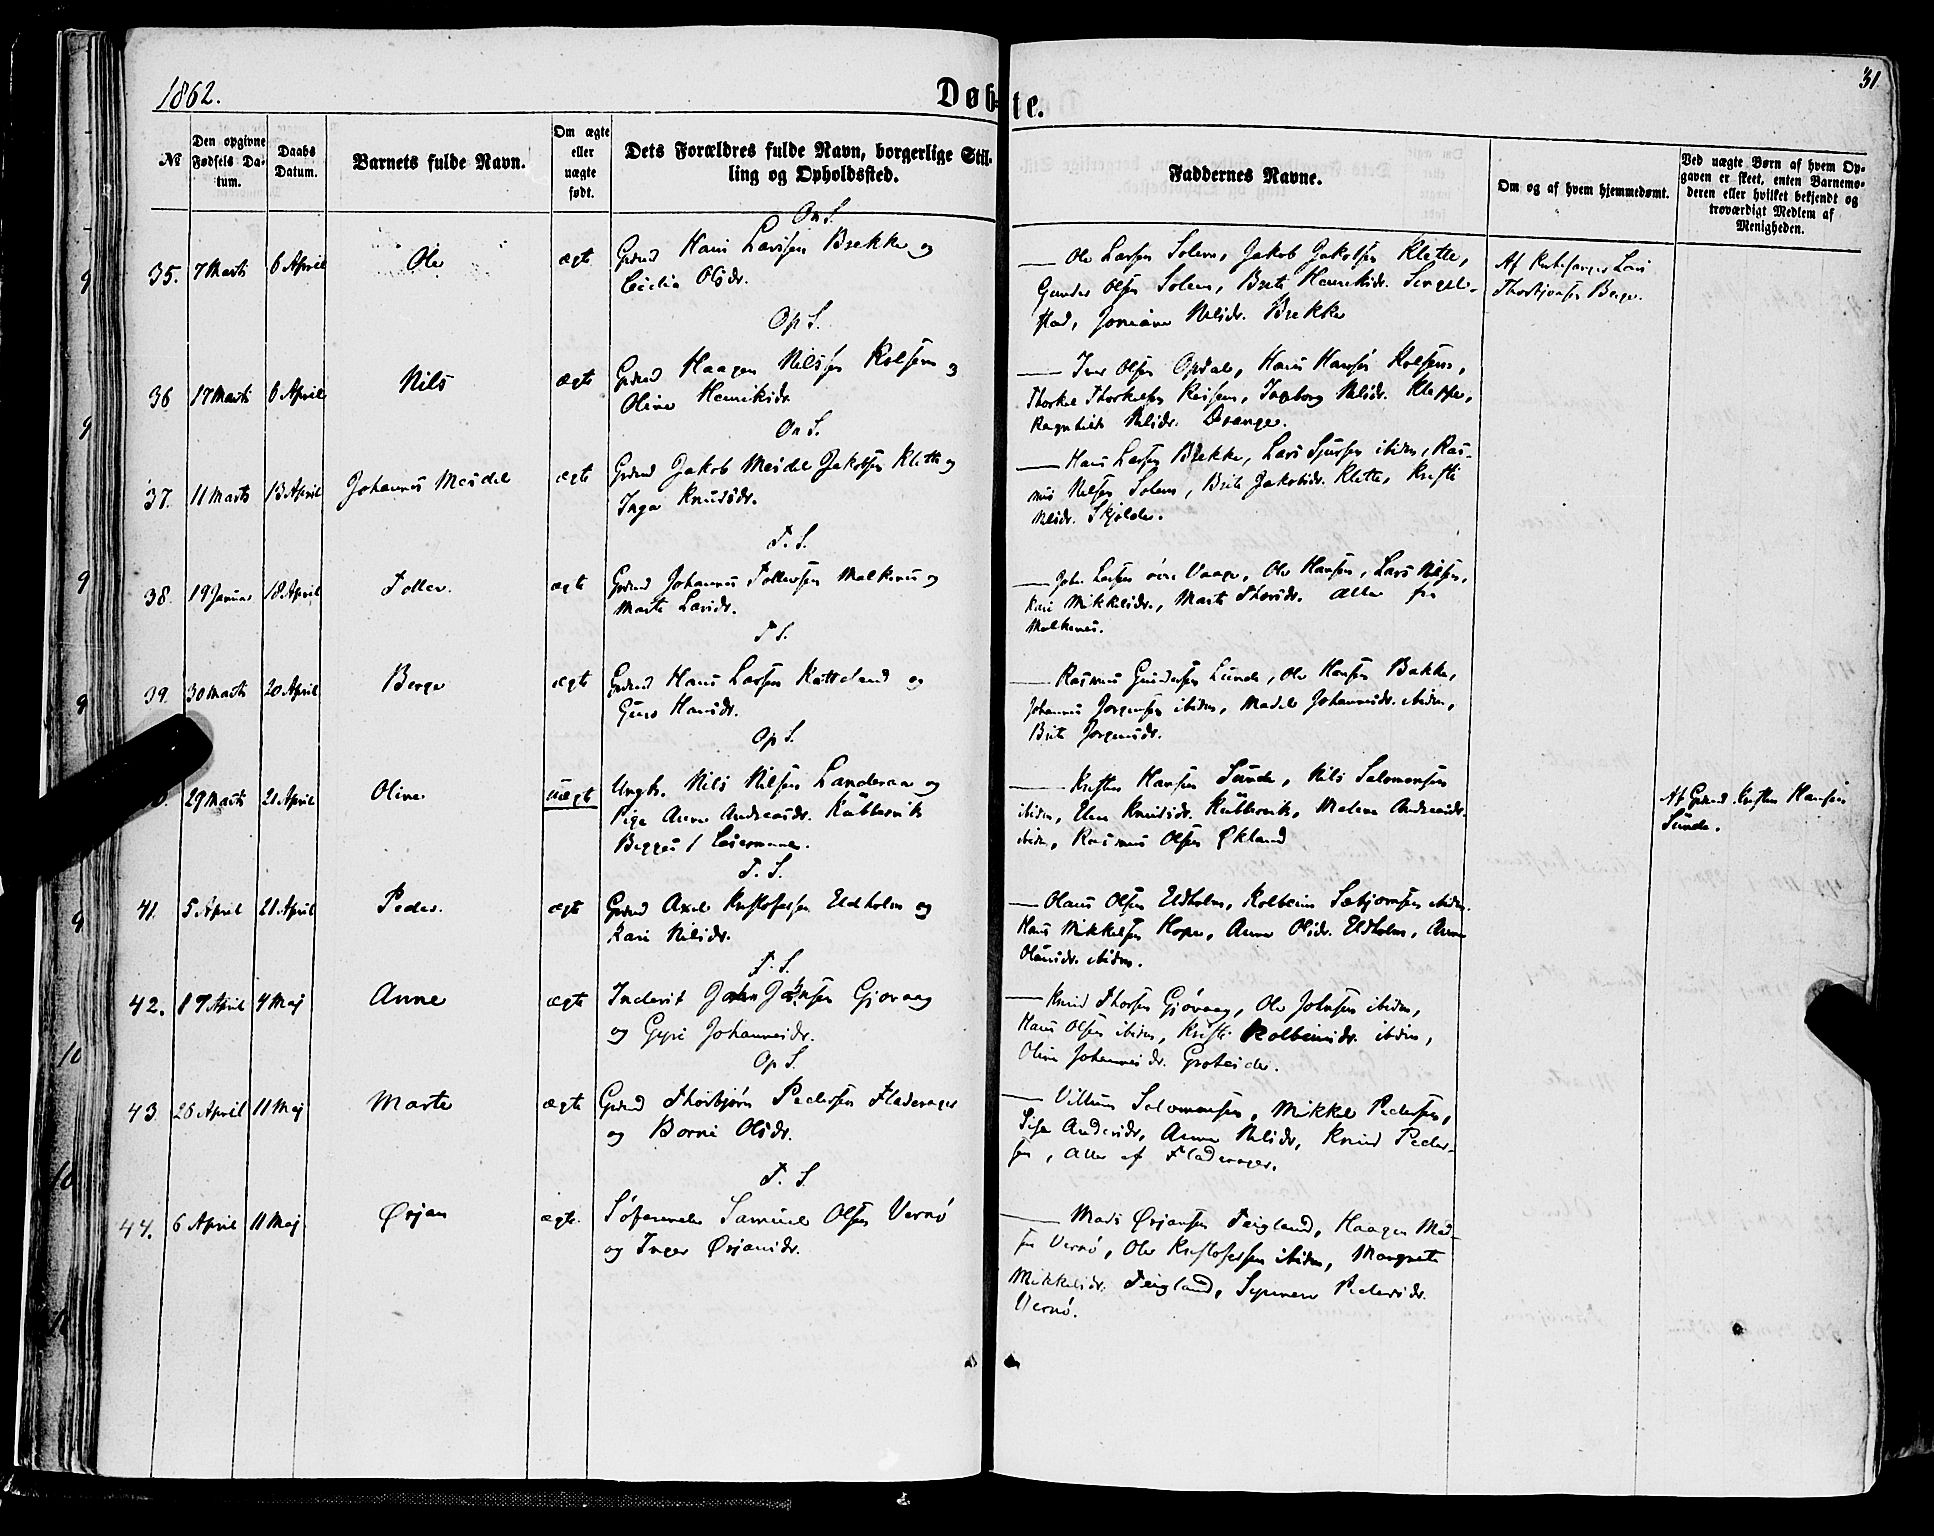 1862.
Døbte.
31
№
Den opgivne Fødsels Datum.
Daabs Datum.
Barnets fulde Navn.
Om ægte eller uægte født.
Dets Forældres fulde Navn, borgerlige Stilling og Opholdssted.
Faddernes Navne.
Om og af hvem hjemmedømt.
Ved uægte Børn af hvem Opgaven er skeet, enten Barnemoderen eller hvilket bekjendt og troværdigt Medlem af Menigheden.
On S.
35. 7 Marts 6 April Ole ægt Grdmd Hans Larssen Brekke og
Cecilia Olsdr.
— Ole Larsen Solem, Jakob Jakobsen Klette,
Gunder Olsen Solem, Brite Henriksdr. Sengelstad,
Nilsdr. Brekke
Af Lars
Thorbjønsen Berge.
Op S.
36 17 Marts 6 April Nils ægte Grdmd Haagen Nilssen Kolsem og
Oline Henriksdr.
— Iver Olsen Opdal, Hans Hansen Kolsem,
Thorkel Thorkelsen Reisem, Ingeborg Nilsdr. Kleppe,
Ragnhild Nilsdr. Drange.
On S.
37. 11 Marts 13 April Johannes Meidel ægt Grdmd Jakob Meidel Jakobsen Klette og
Inga Knudsdr.
— Hans Larsen Brekke, Lars Sjursen ibidm, Rasmus
Nilsen Solem, Brite Jakobsdr. Klette, Kristi
Nilsdr. Skjelde.
T. S.
38. 19 Januar 18 April Tollev. ægt Grdmd Johannes Tollevsen Malkenes og
Marte Larsdr.
— John Larsen øvre Vaage, Ole Hansen, Lars Nilsen,
Kari Mikkelsdr., Marte Thorsdr. alle fra
Malkenes.
T S.
39. 30 Marts 20 April Berge ægt Grdmd Hans Larsen Katteland og
Guro Hansdr.
— Rasmus Gundersen Lunde, Ole Hansen Bakke,
Johannes Jørgensen ibidm, Madel Johannesdr. ibidm,
Brite Jørgensdr.
Op S.
29 Marts 21 April Oline uægt Ungk. Nils Nilsen Landeraa og
Pige Anne Andreasdr. Kubbervik
Begges 1 Leiermaal.
— Kristen Hansen Sunde, Nils Salomonsen
ibidm, Elen Knudsdr. Kubbervik, Malene Andreasdr.
ibidm, Rasmus Olsen Økland
Af Grdmd Kristen Hansen
Sunde.
T. S.
41. 5 April 21 April Peder. ægt Grdmd Axel Kristofersen Eldholm og
Kari Nilsdr.
— Olaus Olsen Eldholm, Kolbein Sæbjørnsen ibidm.
Hans Mikkelsen Hope, Anne Olsdr. Eldholm, Anne
Olausdr. ibidm.
T. S.
42. 17 April 4 Maj Anne ægte Inderst John Johnsen Gjøvaag
og Gyri Johannesdr.
— Knud Thorsen Gjøvaag, Ole Johnsen ibidm,
Hans Olsen ibidm, Kristi Kolbeinsdr. ibidm,
Oline Johannesdr. Groteide.
Op S.
43. 26 April 11 Maj Marte ægte Grdmd Thorbjørn Pedersen Fladerager
og Borni Olsdr.
— Villum Salomonsen, Mikkel Pedersen,
Sissa Andersdr, Anne Nilsdr, Knud Pedersen,
alle af Fladerager.
T. S.
44. 6 April 11 Maj Ørjan ægte. Søfarende Samuel Olsen Vernø
og Inger Ørjansdr.
— Mads Ørjansen Teigland, Haagen Madsen
Vernø, Ole Kristofersen ibidm, Margrete
Mikkelsdr. Teigland, Pedersdr.
Vernø.